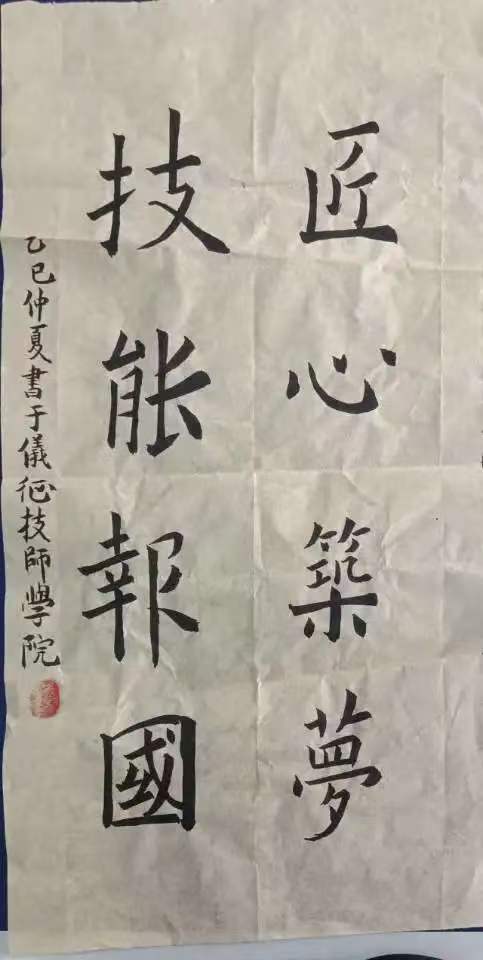 匠心築夢
技能報國
乙巳仲夏書于儀征技師學院